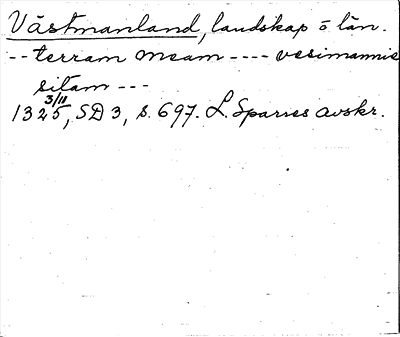 Västmanland, landskap o län.
-- terram meam ---- vesimannie
sitam ---
3/11
1325, SD 3, s. 697. L. Sparres avskr.